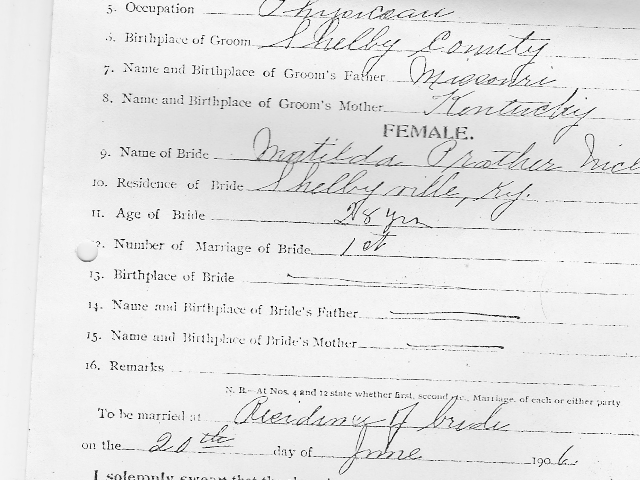 5. Occupation Physician
6. Birthplace of Groom Shelby County
7. Name and Birthplace of Groom's Father Missouri
8. Name and Birthplace of Groom's Mother Kentucky
FEMALE.
9. Name of Bride Matilda Prather
10. Residence of Bride Shelbyville, Ky.
11. Age of Bride 28 yrs
12. Number of Marriage of Bride 1st
13. Birthplace of Bride
14. Name and Birthplace of Bride's Father
15. Name and Birthplace of Bride's Mother
16. Remarks
N. B.—At Nos. 4 and 12 state whether first, second etc., Marriage, of each or either party
To be married at Residence of bride
on the 20th day of June 1906
I solemnly swear that the